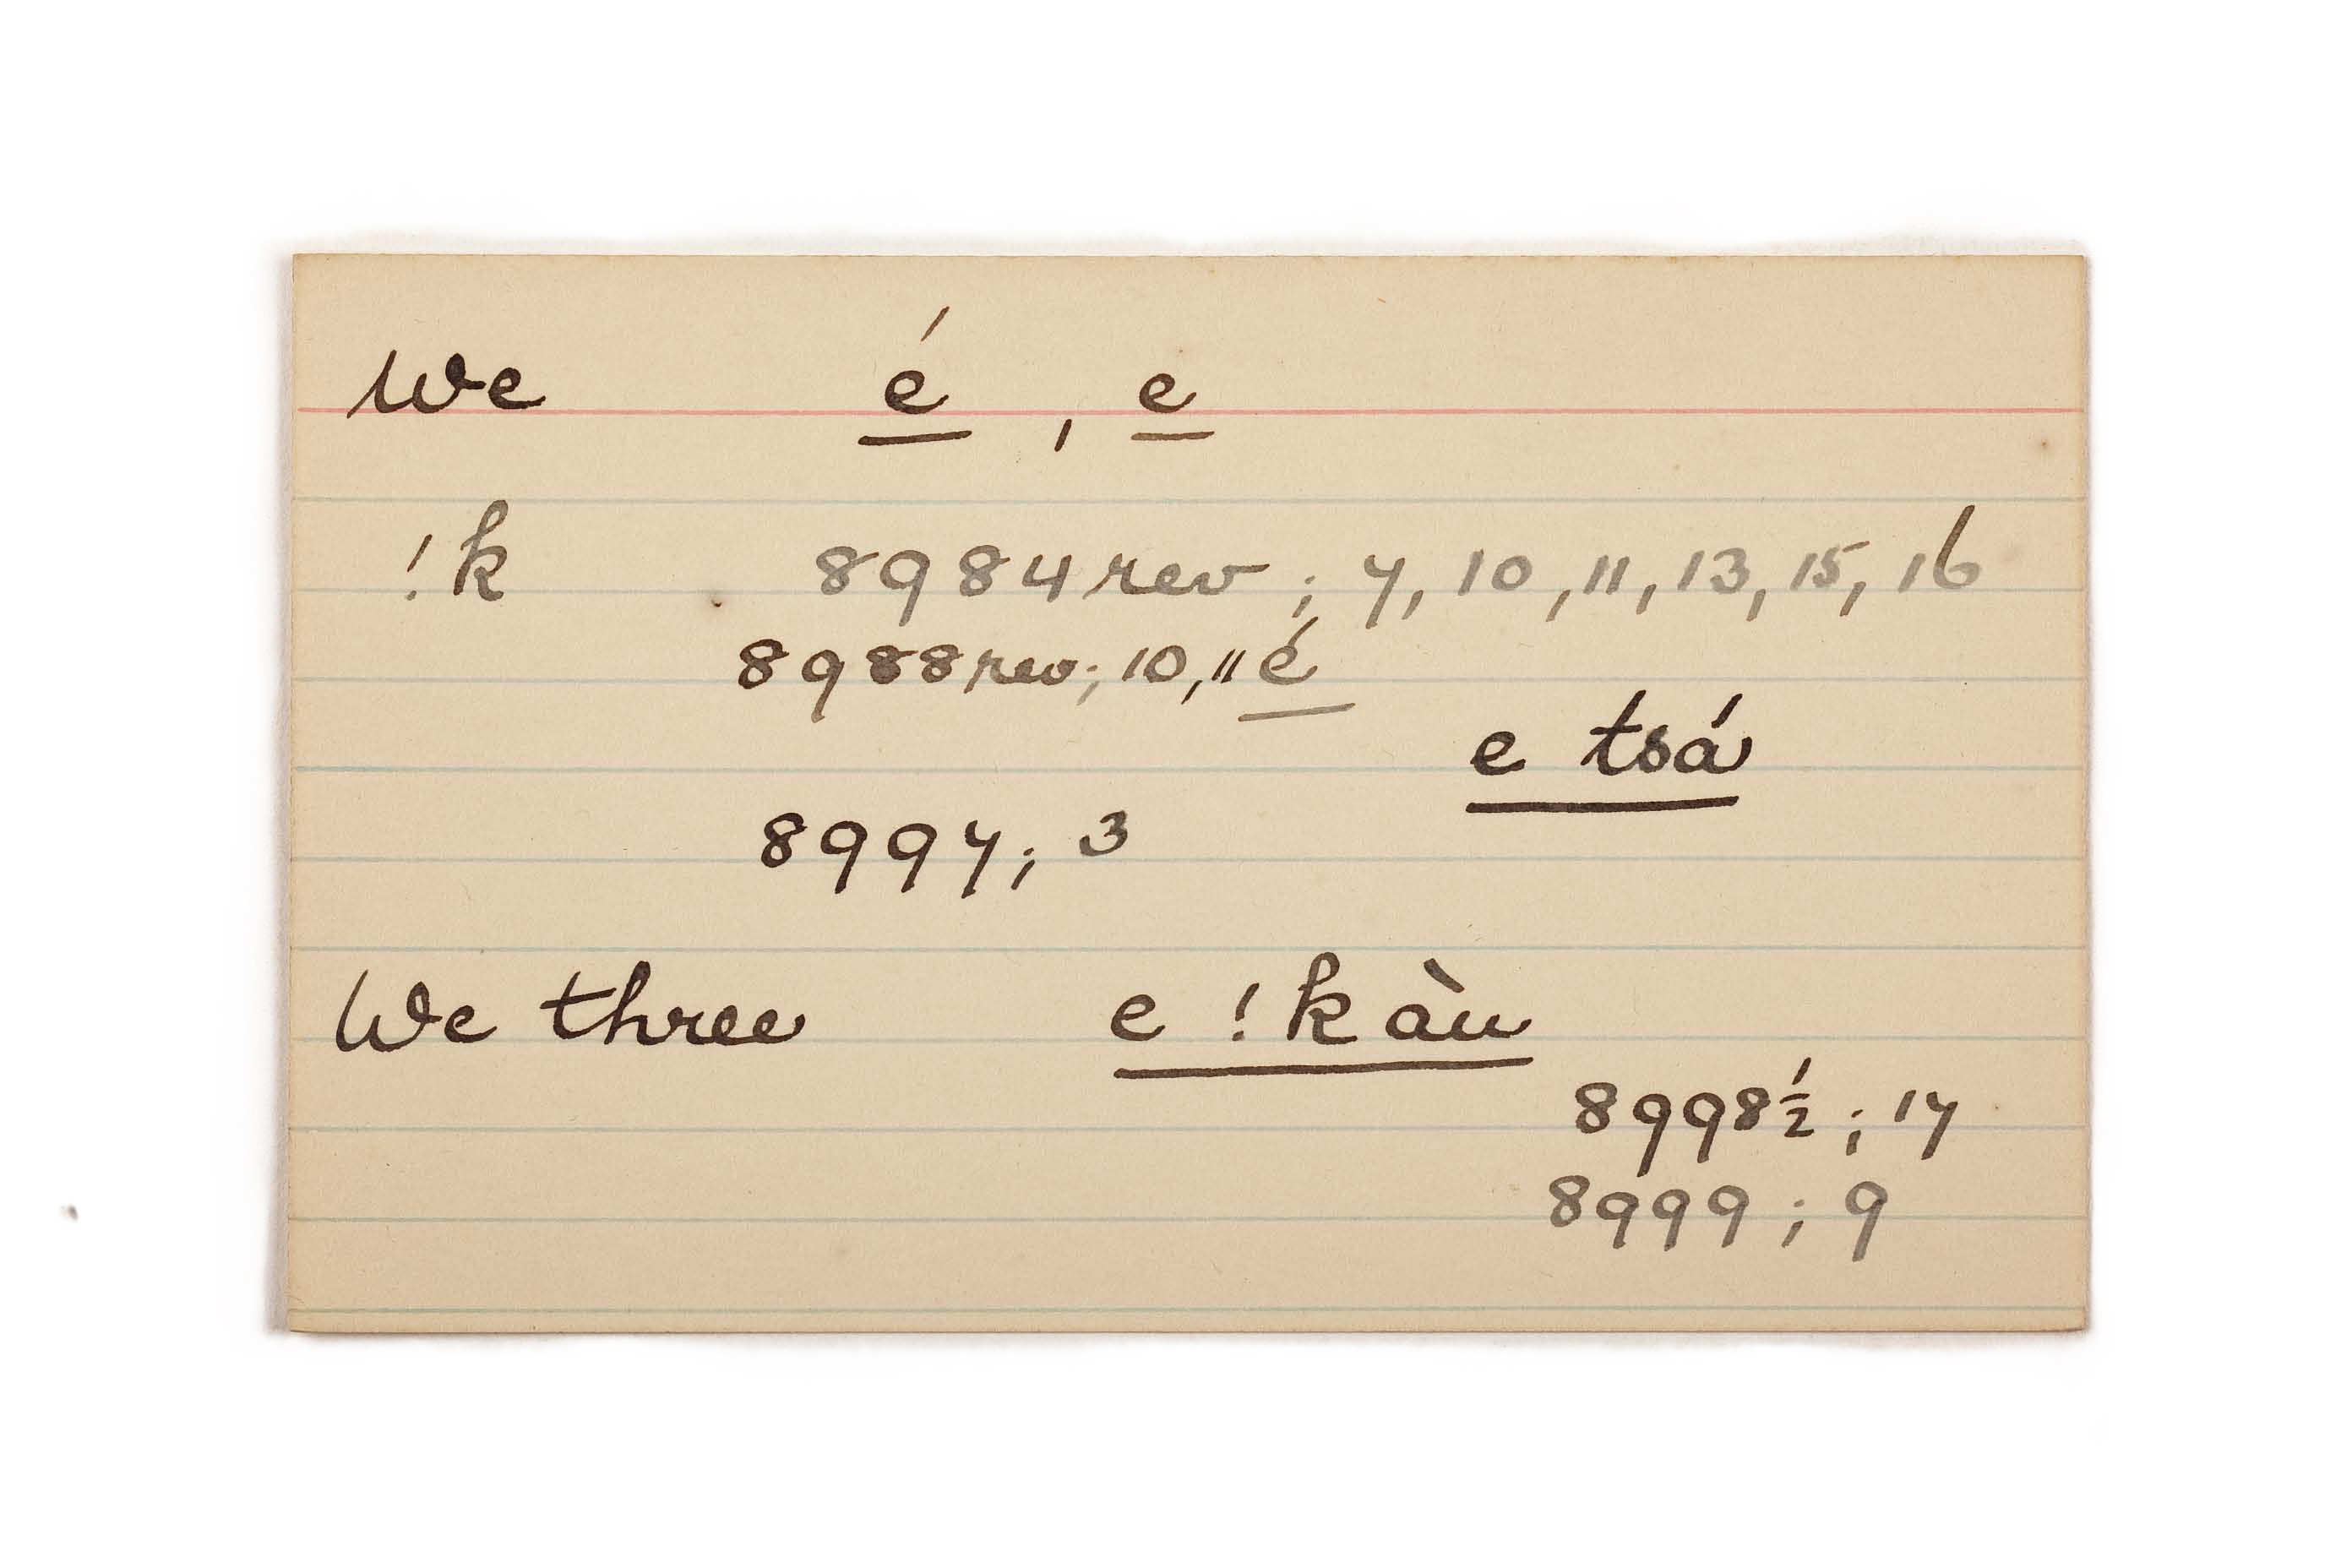 We é, e
!k 8984 rev; 7, 10, 11, 13, 15, 16
8988 rev; 10, 11 é
e tsá
8997; 3
We three e !kàu
8998½; 17
8999; 9